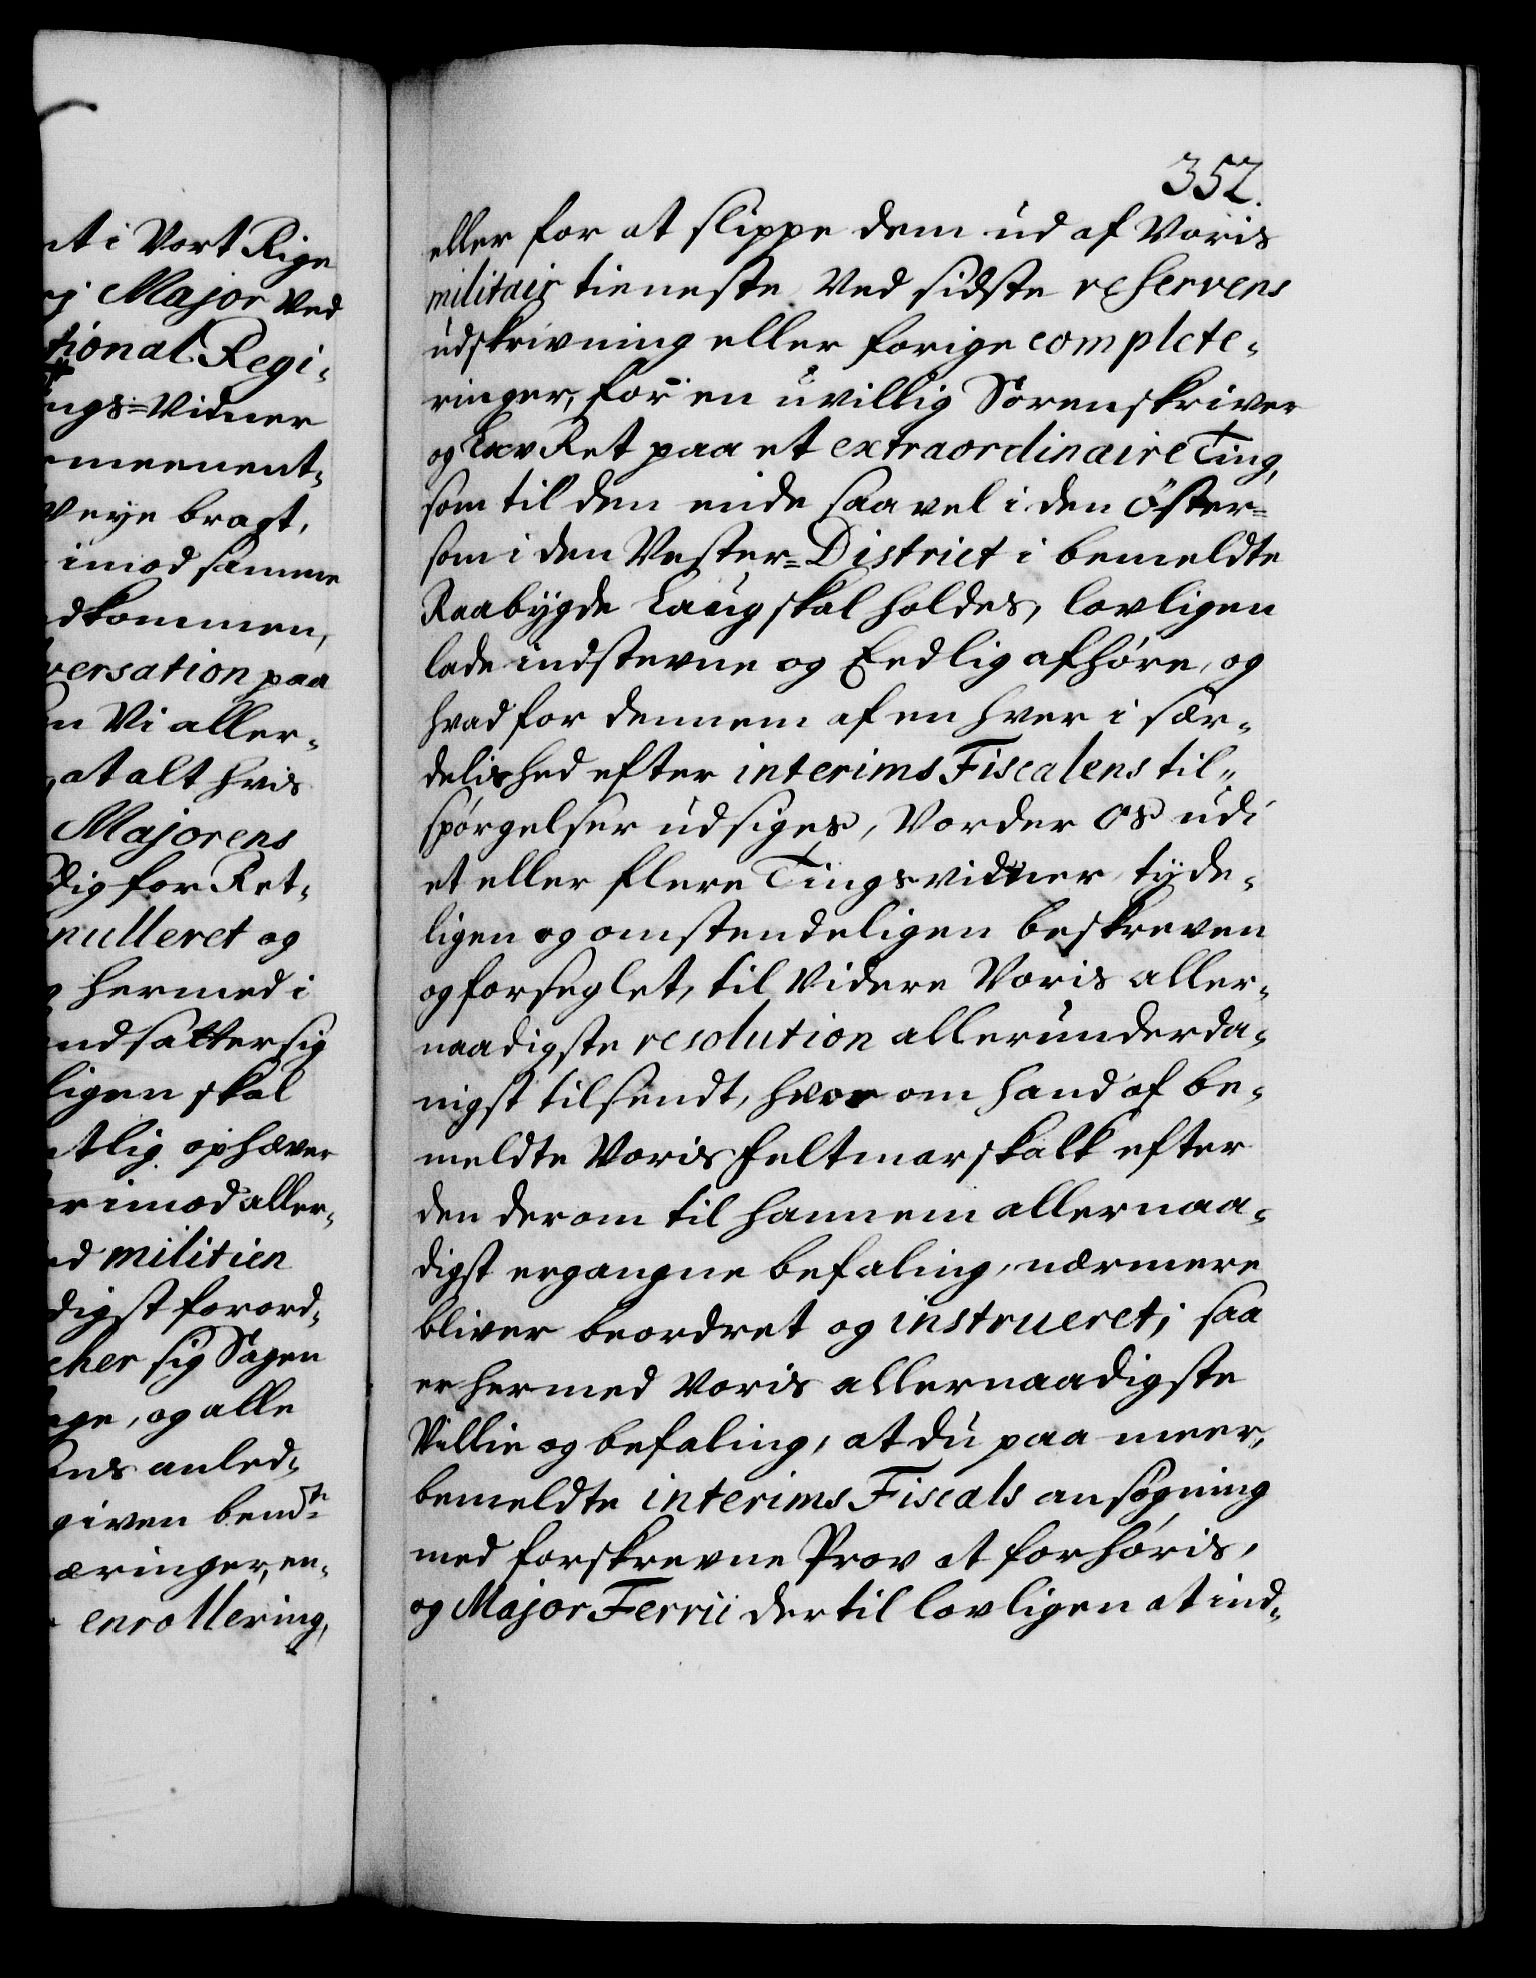 nt i Vort Rige
rj Major ved
tional Regi-
ngs-Vidner
meenent-
Veye bragt,
imod samme
dkommen,
versation paa
n Vi aller-
at alt hvis
Majorens
dig for Ret-
nulleret og
hermed i
nd sætter sig
ligen skal
tlig ophæver
r imod aller-
d militien
digst forord-
cher sig Sagen
ge, og alle
ens anled-
given bemdte
æringer, en-
enrollering,
352.
eller for at slippe dem ud af Voris
militair tieneste ved sidste reservens
udskrivning eller forige complete-
ringer, for en uvillig Sorenskriver
og Lav Ret paa et extraordinaire Ting,
som til den ende saavel i den Öster-
som i den Vester-District i bemeldte
Raabygde Laug skal holdes, lovligen
lade indstevne og Eedlig afhøre, og
hvad for dennem af en hver i sær-
delished efter interims Fiscalens til-
spörgelser udsiges, Vorder os udi
et eller flere Tingsvidner tyde-
ligen og omstendeligen beskreven
og forseglet, til Videre Voris aller-
naadigste resolution allerunderda-
nigst tilsendt, hvor om hand af be-
meldte Voris Feltmarskalk efter
den derom til hannem allernaa-
digst ergangne befaling, nærmere
bliver beordret og instrueret; saa
er hermed Voris allernaadigste
Villie og befaling, at du paa meer-
bemeldte interims Fiscals ansøgning
med forskrevne Prov at forhøris,
og Major Ferrii dertil lovligen at ind-